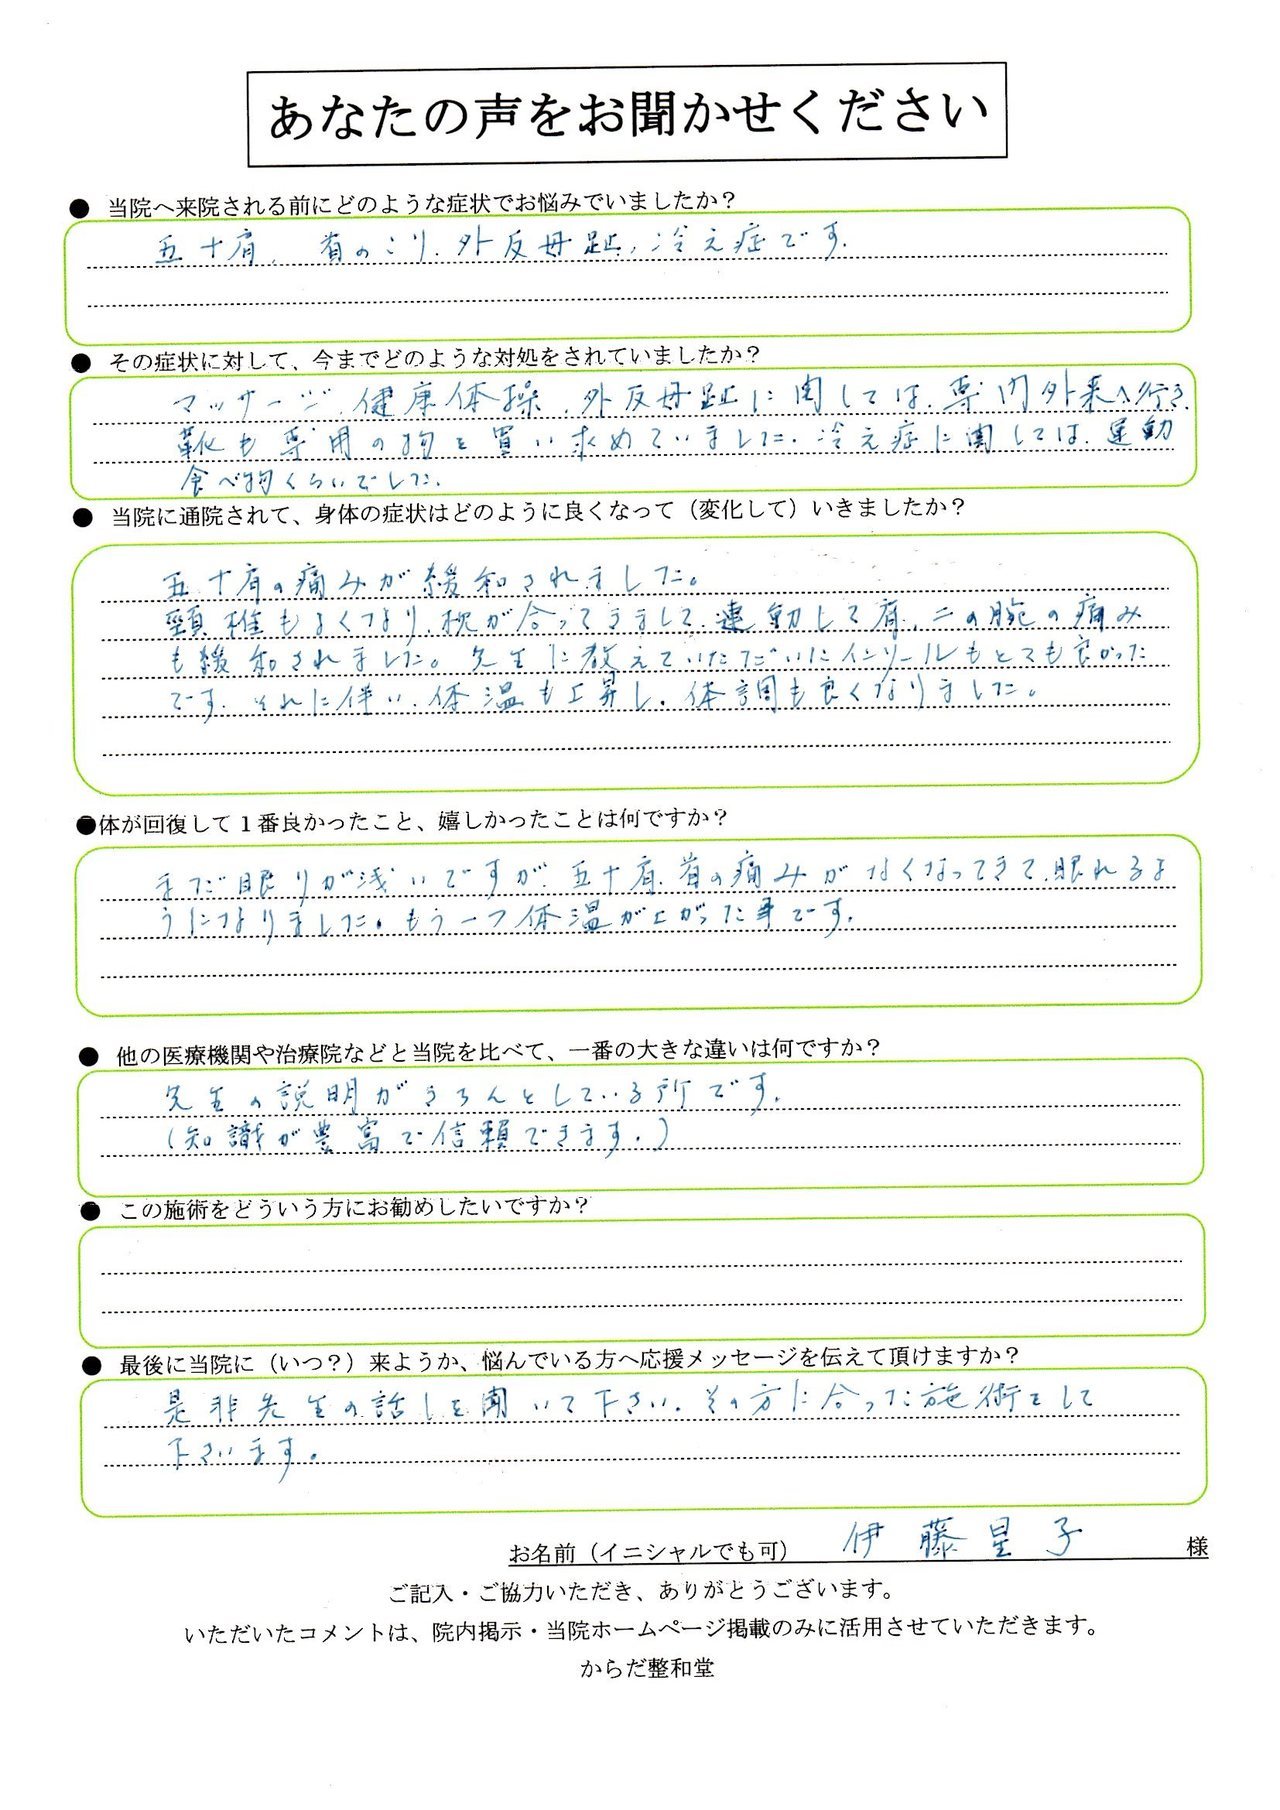 あなたの声をお聞かせください
● 当院へ来院される前にどのような症状でお悩みでいましたか？
五十肩、首のこり、外反母趾、冷え症です。
● その症状に対して、今までどのような対処をされていましたか？
マッサージ、健康体操、外反母趾に関しては、専門外来へ行き、
靴も専用の物を買い求めていました。冷え症に関しては、運動
食べ物くらいでした。
● 当院に通院されて、身体の症状はどのように良くなって（変化して）いきましたか？
五十肩の痛みが緩和されました。
頸椎もよくなり、枕が合ってきまして、連動して肩、二の腕の痛み
も緩和されました。先生に教えていただいたインソールもとても良かった
です。それに伴い、体温も上昇し、体調も良くなりました。
●体が回復して１番良かったこと、嬉しかったことは何ですか？
まだ眠りが浅いですが、五十肩、首の痛みがなくなってきて、眠れるよ
うになりました。もう一つ体温が上がった事です。
● 他の医療機関や治療院などと当院を比べて、一番の大きな違いは何ですか？
先生の説明がきちんとしている所です。
（知識が豊富で信頼できます。）
● この施術をどういう方にお勧めしたいですか？
● 最後に当院に（いつ？）来ようか、悩んでいる方へ応援メッセージを伝えて頂けますか？
是非先生の話しを聞いて下さい。その方に合った施術をして
下さいます。
お名前（イニシャルでも可） 伊藤星子 様
ご記入・ご協力いただき、ありがとうございます。
いただいたコメントは、院内掲示・当院ホームページ掲載のみに活用させていただきます。
からだ整和堂